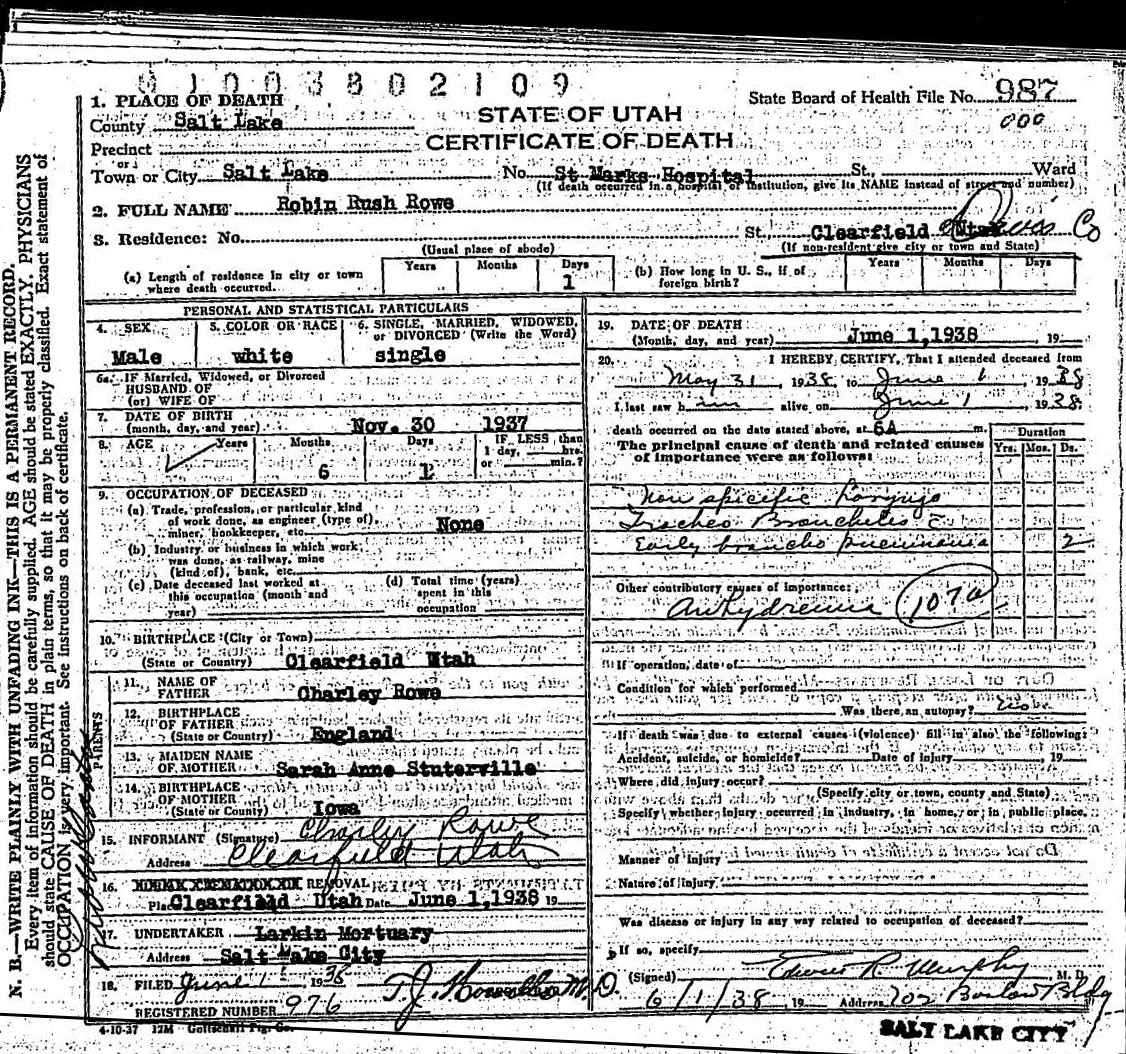 0 1 0 0 3 8 0 2 1 0 9
State Board of Health File No. 987
000
STATE OF UTAH
CERTIFICATE OF DEATH
1. PLACE OF DEATH
County Salt Lake
Precinct
or
Town or City Salt Lake No. St Marks Hospital St., Ward
(If death occurred in a hospital or institution, give its NAME instead of street and number)
2. FULL NAME Robin Rush Rowe
3. Residence: No. St. Clearfield Utah Davis Co
(Usual place of abode) (If non-resident give city or town and State)
(a) Length of residence in city or town where death occurred. Years Months Days 1
(b) How long in U. S., if of foreign birth? Years Months Days
PERSONAL AND STATISTICAL PARTICULARS
4. SEX Male
5. COLOR OR RACE white
6. SINGLE, MARRIED, WIDOWED, or DIVORCED (Write the Word) single
6a. IF Married, Widowed, or Divorced
HUSBAND OF
(or) WIFE OF
7. DATE OF BIRTH
(month, day, and year) Nov. 30 1937
8. AGE Years Months 6 Days 1 IF LESS than 1 day, hrs. or min.?
9. OCCUPATION OF DECEASED
(a) Trade, profession, or particular kind
of work done, as engineer (type of),
miner, bookkeeper, etc. None
(b) Industry or business in which work
was done, as railway, mine
(kind of), bank, etc.
(c) Date deceased last worked at
this occupation (month and
year)
(d) Total time (years)
spent in this
occupation
10. BIRTHPLACE (City or Town)
(State or Country) Clearfield Utah
PARENTS
11. NAME OF
FATHER Charley Rowe
12. BIRTHPLACE
OF FATHER
(State or Country) England
13. MAIDEN NAME
OF MOTHER Sarah Anne Stuterville
14. BIRTHPLACE
OF MOTHER
(State or Country) Iowa
15. INFORMANT (Signature) Charley Rowe
Address Clearfield Utah
16. REMOVAL
Place Clearfield Utah Date June 1,1938 19
17. UNDERTAKER Larkin Mortuary
Address Salt Lake City
18. FILED June 1 1938
REGISTERED NUMBER 976
4-10-37 12M
19. DATE OF DEATH
(Month, day, and year) June 1,1938 19
20. I HEREBY CERTIFY, That I attended deceased from
May 31, 1938, to June 1, 1938
I last saw him alive on June 1, 1938
death occurred on the date stated above, at 6A m.
The principal cause of death and related causes
of importance were as follows:
Duration
Yrs. Mos. Ds.
Non specific Laryngo
Tracheo Bronchitis c
Early broncho pneumonia 2
Other contributory causes of importance:
Anhydremia 107a
If operation, date of
Condition for which performed
Was there an autopsy?
If death was due to external causes (violence) fill in also the following:
Accident, suicide, or homicide? Date of injury 19
Where did injury occur?
(Specify city or town, county and State)
Specify whether injury occurred in industry, in home, or in public place.
Manner of injury
Nature of injury
Was disease or injury in any way related to occupation of deceased?
If so, specify
(Signed) Edwin R. Murphy M. D.
6/1/38 19 Address 702 Boston Bldg
SALT LAKE CITY
N. B.—WRITE PLAINLY WITH UNFADING INK—THIS IS A PERMANENT RECORD.
Every item of information should be carefully supplied. AGE should be stated EXACTLY. PHYSICIANS
should state CAUSE OF DEATH in plain terms, so that it may be properly classified. Exact statement of
OCCUPATION is very important. See instructions on back of certificate.